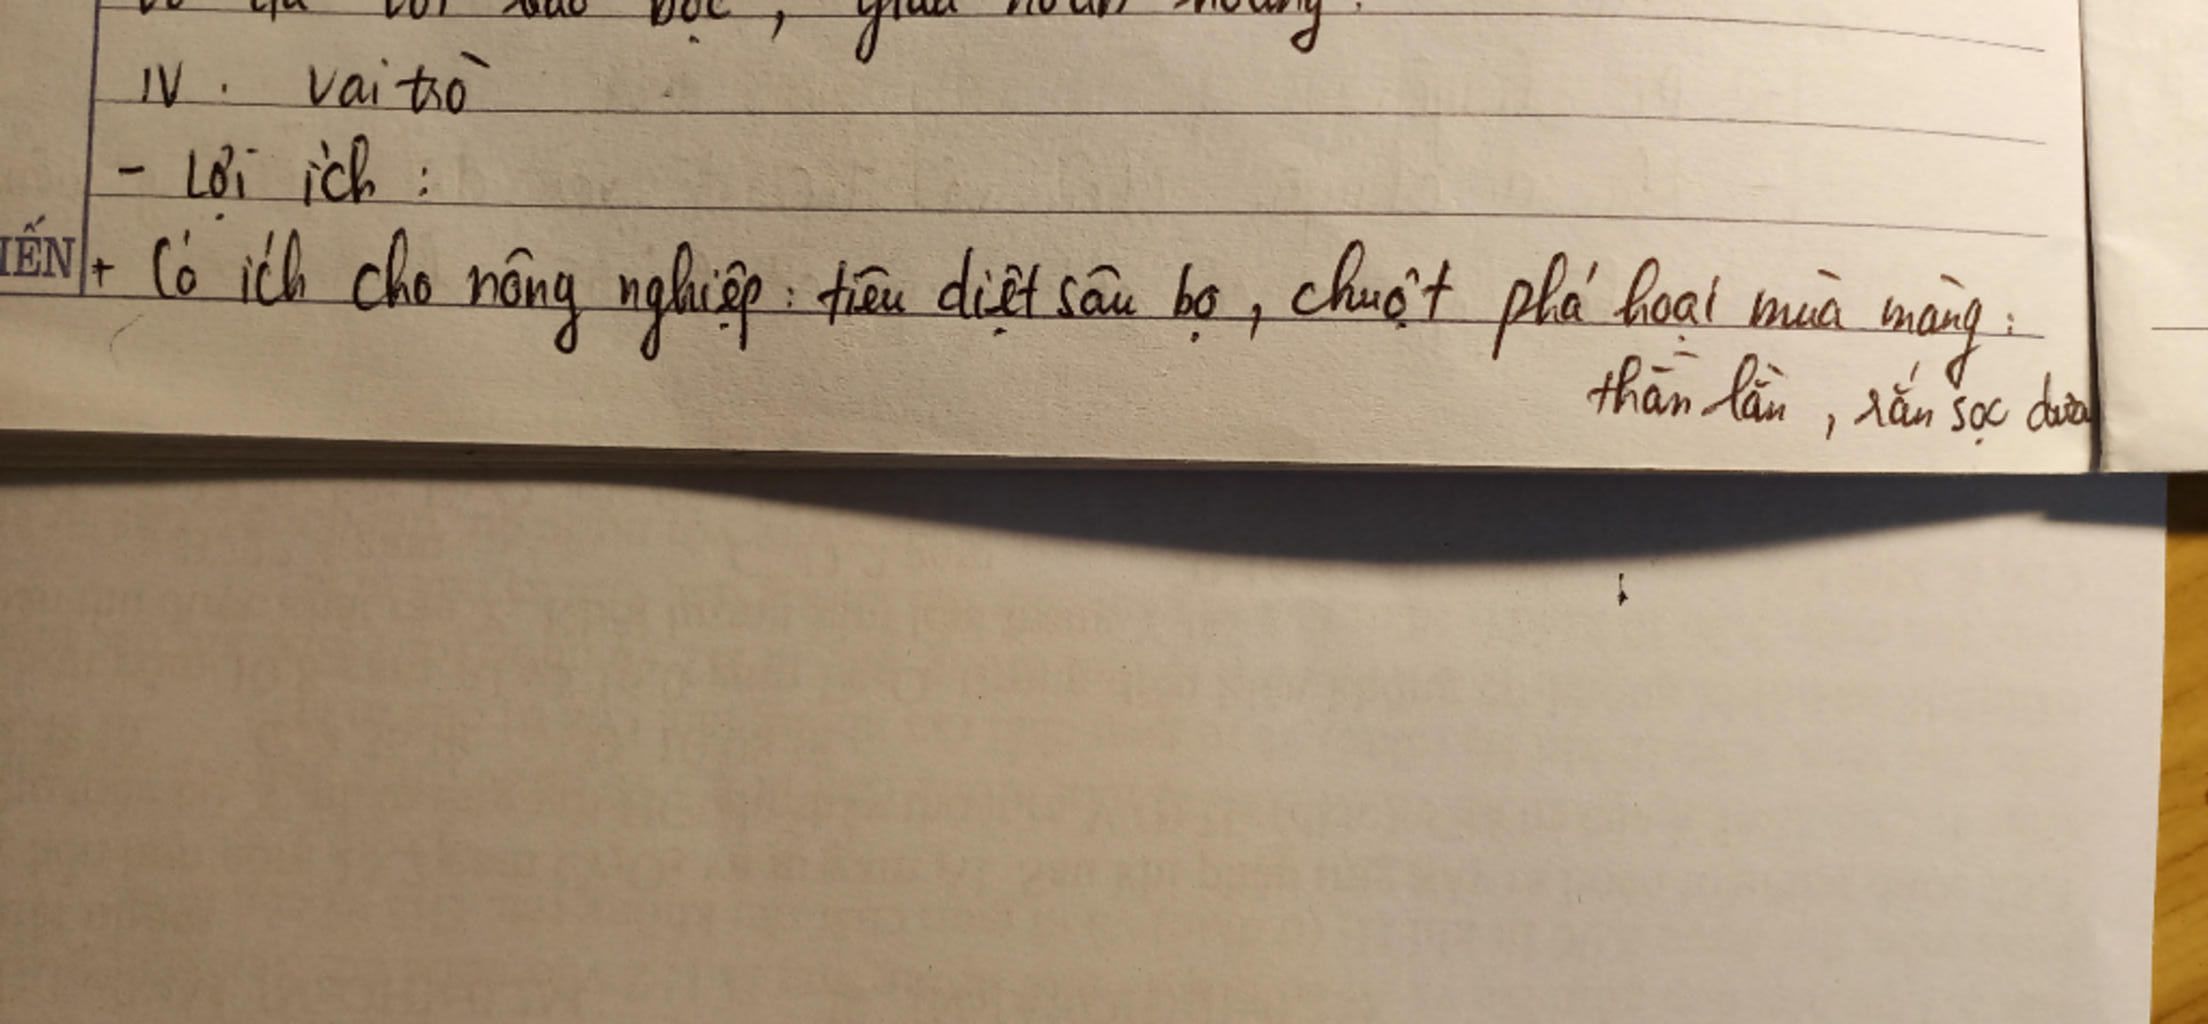 bọc, giàu noãn hoàng.
IV. Vai trò
- Lợi ích :
IẾN
+ Có ích cho nông nghiệp : tiêu diệt sâu bọ, chuột phá hoại mùa màng :
thằn lằn, rắn sọc dưa